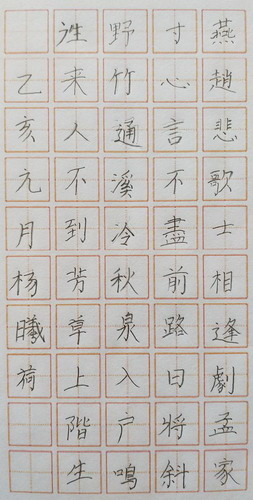 燕趙悲歌士相逢劇孟家
寸心言不盡前路日將斜
野竹通溪冷秋泉入户鳴
来人不到芳草上階生
乙亥元月杨曦荷